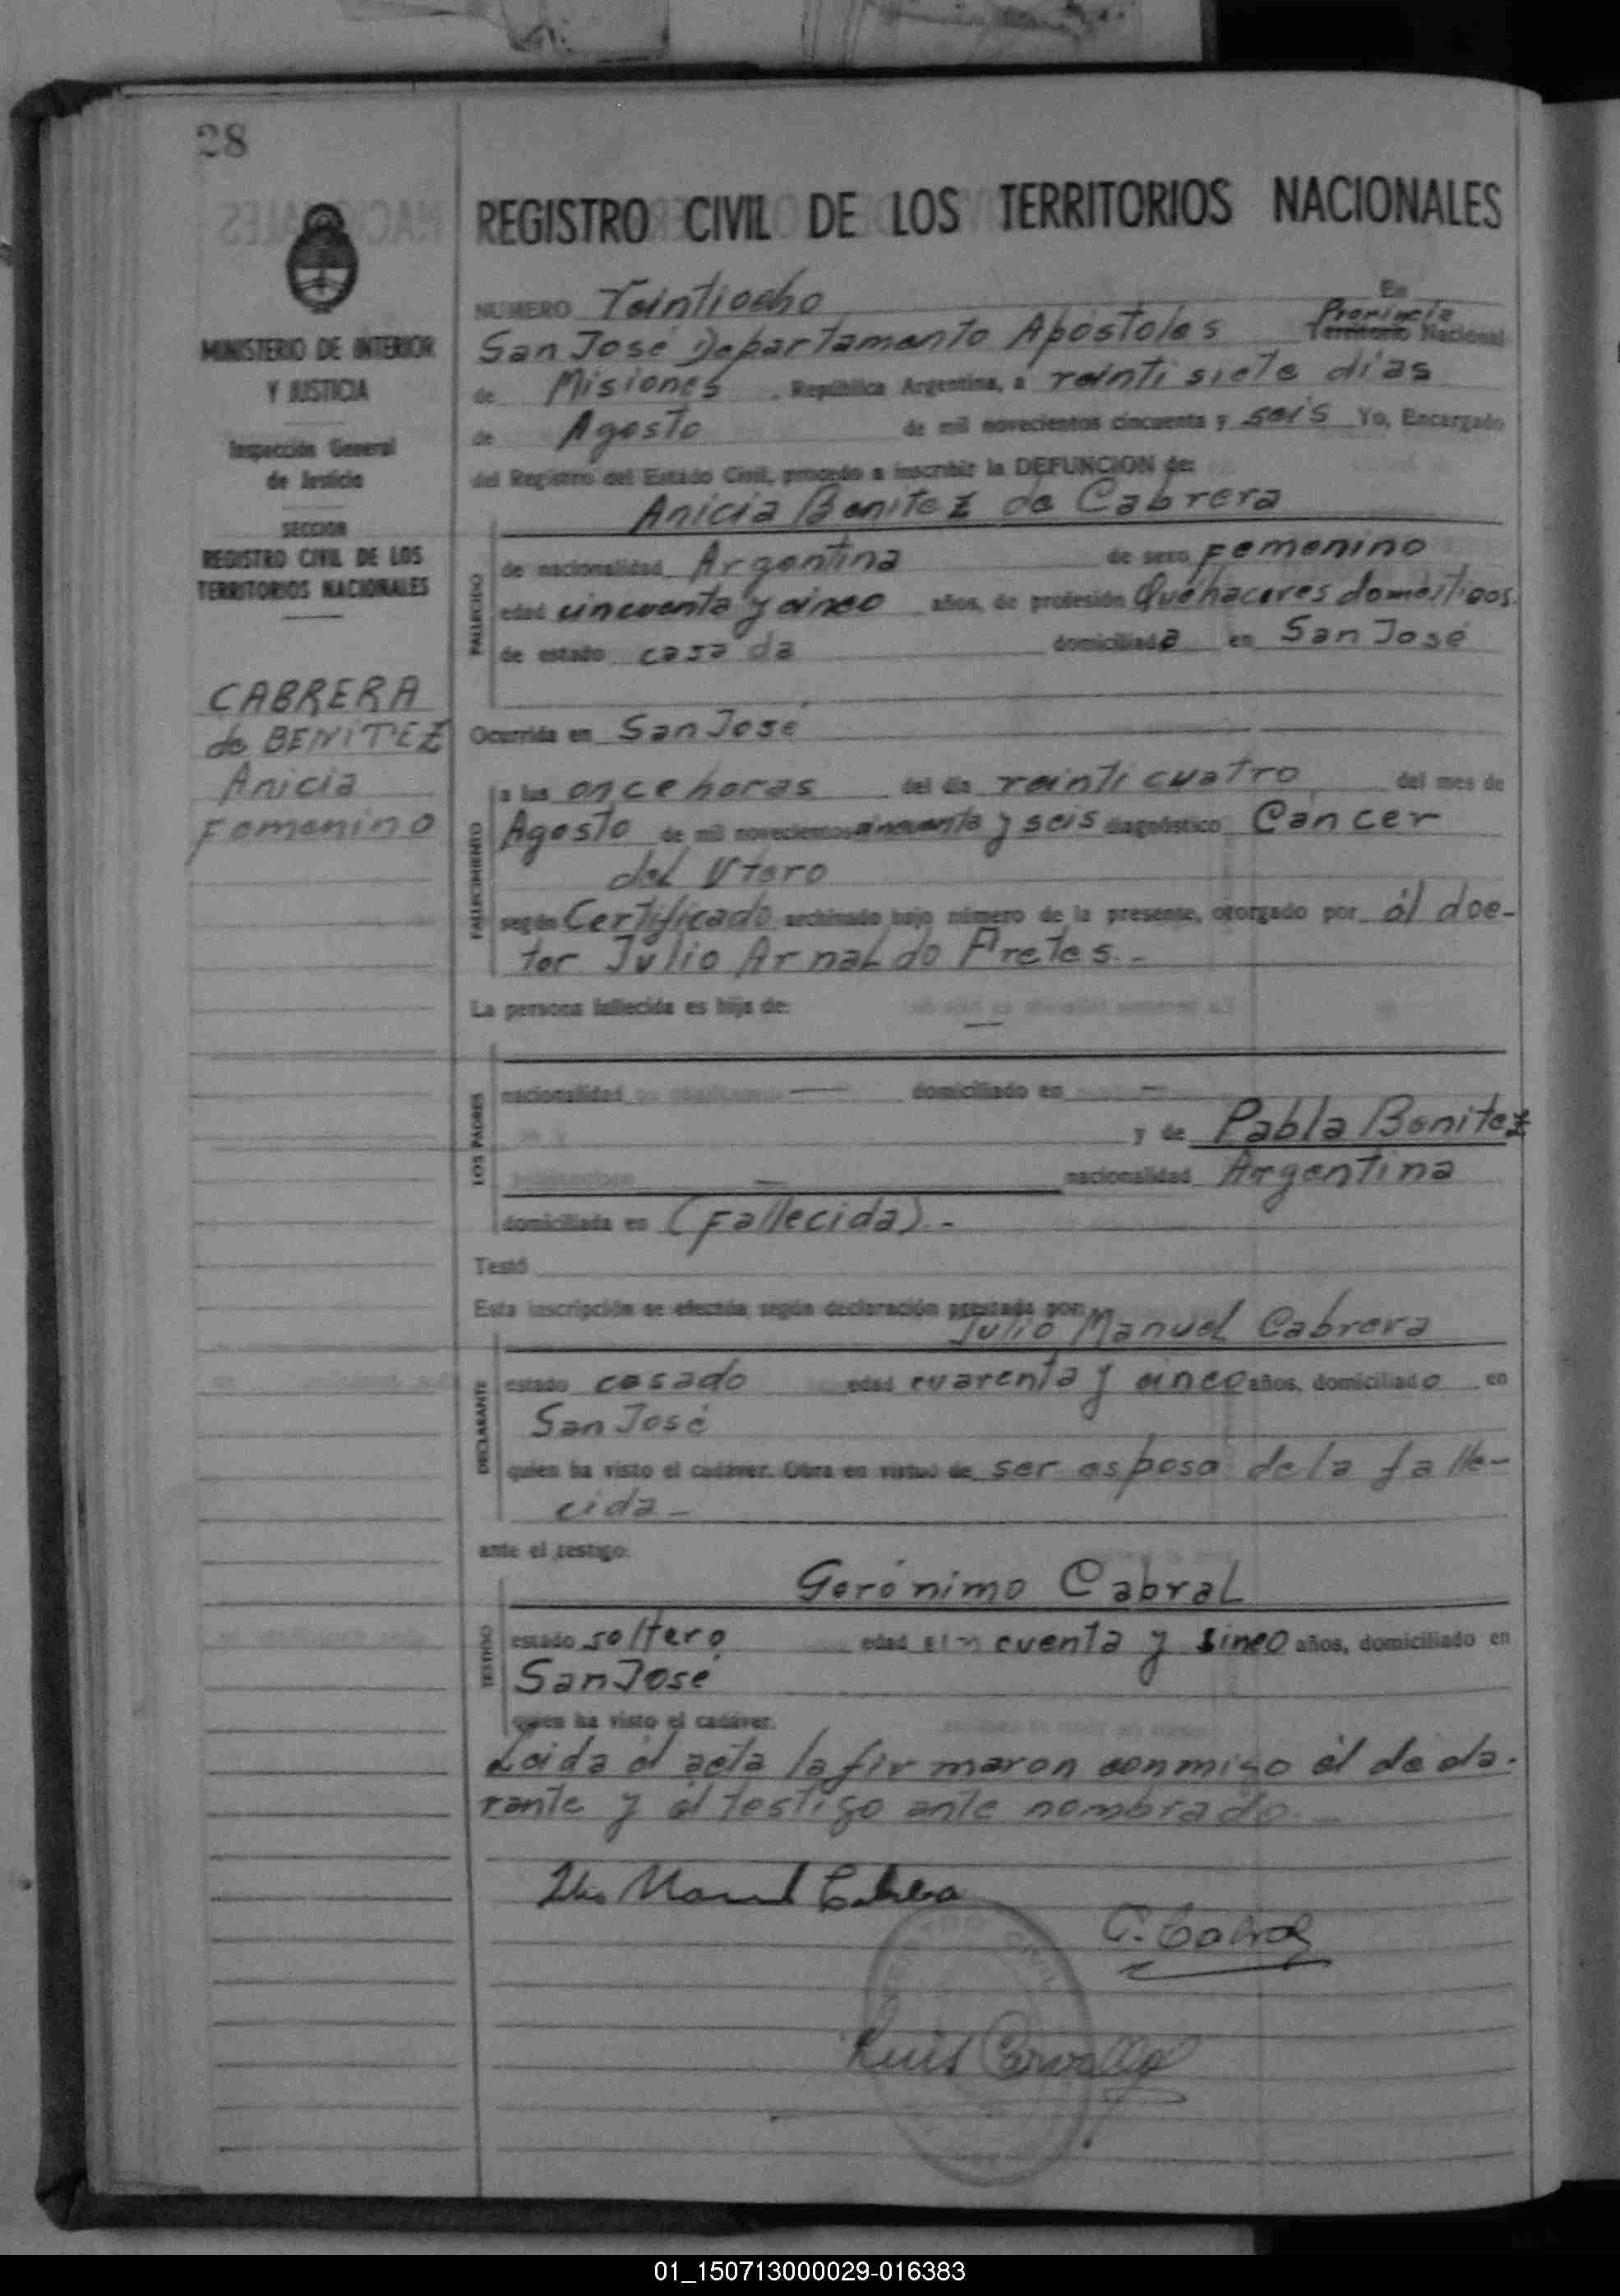 28
REGISTRO CIVIL DE LOS TERRITORIOS NACIONALES
MINISTERIO DE INTERIOR
Y JUSTICIA
Inspección General
de Justicia
SECCION
REGISTRO CIVIL DE LOS
TERRITORIOS NACIONALES
CABRERA
de BENITEZ
Anicia
Femenino
NUMERO Veintiocho En
San José Departamento Apóstoles Provincia Territorio Nacional
de Misiones, República Argentina, a veinti siete días
de Agosto de mil novecientos cincuenta y seis Yo, Encargado
del Registro del Estado Civil, procedo a inscribir la DEFUNCION de:
Anicia Benitez de Cabrera
FALLECIDO
de nacionalidad Argentina de sexo femenino
edad cincuenta y cinco años, de profesión Quehaceres domésticos.
de estado casada domiciliada en San José
Ocurrida en San José
FALLECIMIENTO
a las once horas del día veinti cuatro del mes de
Agosto de mil novecientos cincuenta y seis diagnóstico Cáncer
del Utero
según Certificado archivado bajo número de la presente, otorgado por él doc-
tor Julio Arnaldo Pretes.-
La persona fallecida es hija de:
—
LOS PADRES
nacionalidad — domiciliado en —
y de Pabla Benitez
— nacionalidad Argentina
domiciliada en (Fallecida).-
Testó
Esta inscripción se efectúa según declaración prestada por:
Julio Manuel Cabrera
DECLARANTE
estado casado edad cuarenta y cinco años, domiciliado en
San José
quien ha visto el cadáver. Obra en virtud de ser esposo de la falle-
cida-
ante el testigo:
Gerónimo Cabral
TESTIGO
estado soltero edad cincuenta y sinco años, domiciliado en
San José
quien ha visto el cadáver.
Leida él acta la firmaron conmigo él decla-
rante y él testigo ante nombrado.-
G. Cabral
Luis Carvallo
01_150713000029-016383